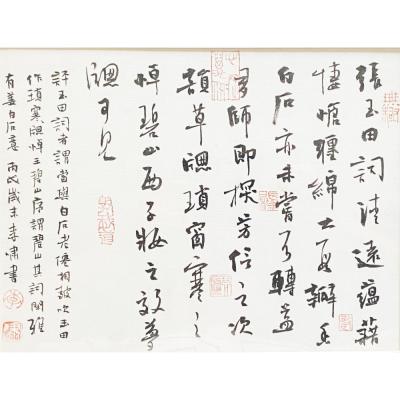 張玉田詞清遠蘊藉
悽愴纏綿大段瓣香
白石亦未嘗不轉益
多師即探芳信之次
韻草牕瑣窗寒之
悼碧山西子妝之效夢
牕可見
評玉田詞者謂當與白石老僊相鼓吹玉田
作瑣寒牕悼王碧山序謂碧山其詞閒雅
有姜白石意 丙戌歲末 書